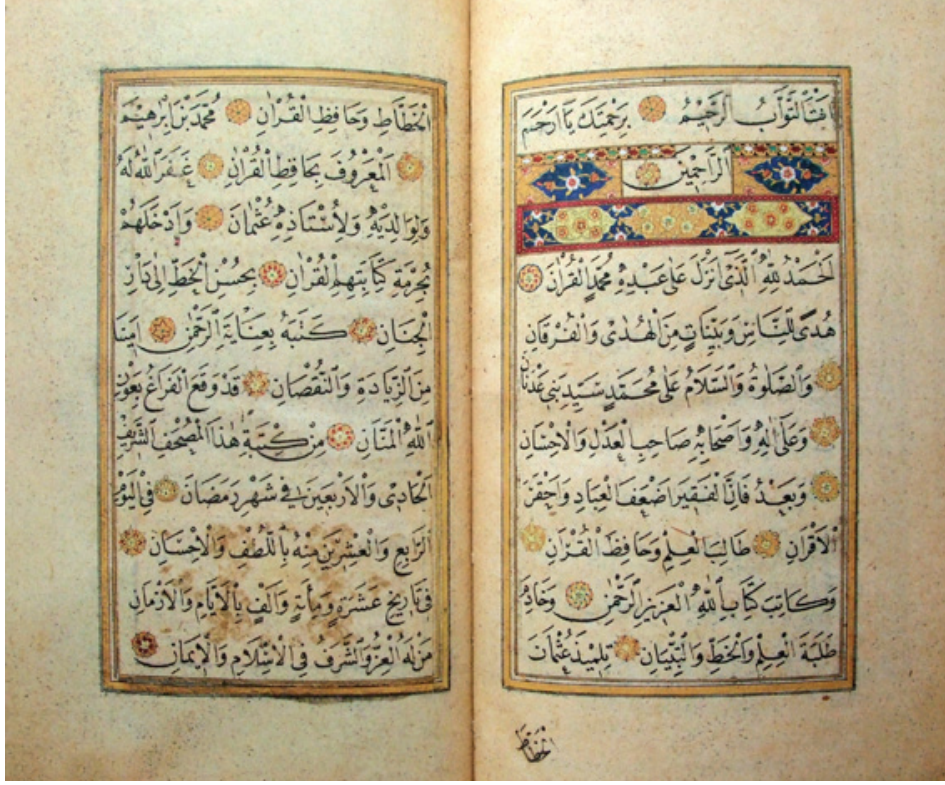 انت التواب الرحيم برحمتك يا ارحم
الراحمين
الحمد لله الذي انزل على عبده محمد القران
هدى للناس وبينات من الهدى والفرقان
والصلوة والسلام على محمد سيد بنى عدنان
وعلى اله واصحابه صاحب العدل والاحسان
وبعد فان الفقير اضعف العباد واحقر
الاقران طالب العلم وحافظ القران
وكاتب كتاب الله العزيز الرحمن وخادم
طلبة العلم والخط والتبيان تلميذ عثمان
الخطاط
الخطاط وحافظ القران محمد بن ابرهيم
المعروف بحافظ القران غفر الله له
ولوالديه ولاستاذه عثمان وادخلهم
بحرمة كتابتهم القران بحسن الخط الى دار
الجنان كتبه بعناية الرحمن امينا
من الزيادة والنقصان قد وقع الفراغ بعون
الله المنان من كتبة هذا المصحف الشريف
الحادى والاربعين في شهر رمضان في اليوم
الرابع والعشرين منه باللطف والاحسان
في تاريخ عشرة ومأية والف بالايام والازمان
من له العز والشرف في الاسلام والايمان